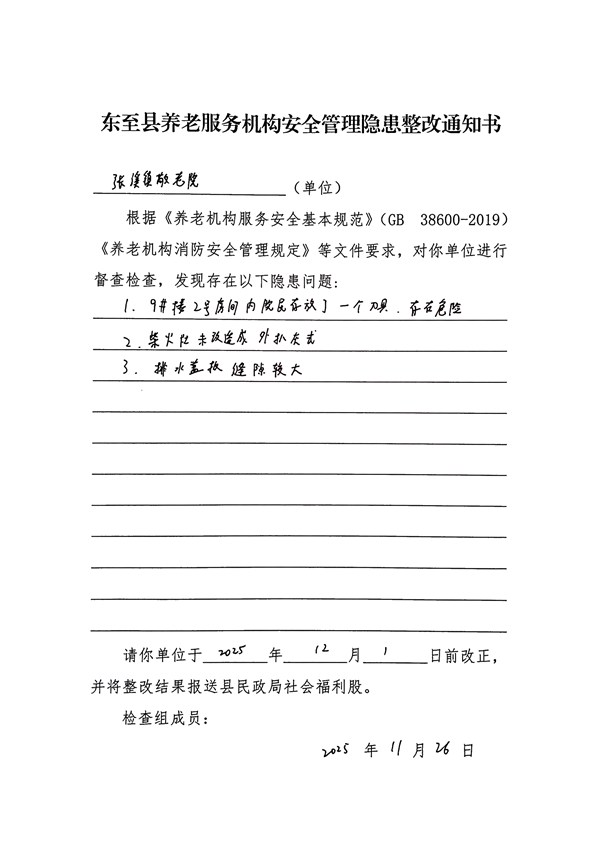 东至县养老服务机构安全管理隐患整改通知书
张溪镇敬老院（单位）
根据《养老机构服务安全基本规范》（GB 38600-2019）
《养老机构消防安全管理规定》等文件要求，对你单位进行
督查检查，发现存在以下隐患问题：
1. 9#楼2号房间内院民存放了一个刀具.存在危险
2. 柴火灶未改造成外扒灰式
3. 排水盖板缝隙较大
请你单位于2025年12月1日前改正，
并将整改结果报送县民政局社会福利股。
检查组成员：
2025年11月26日